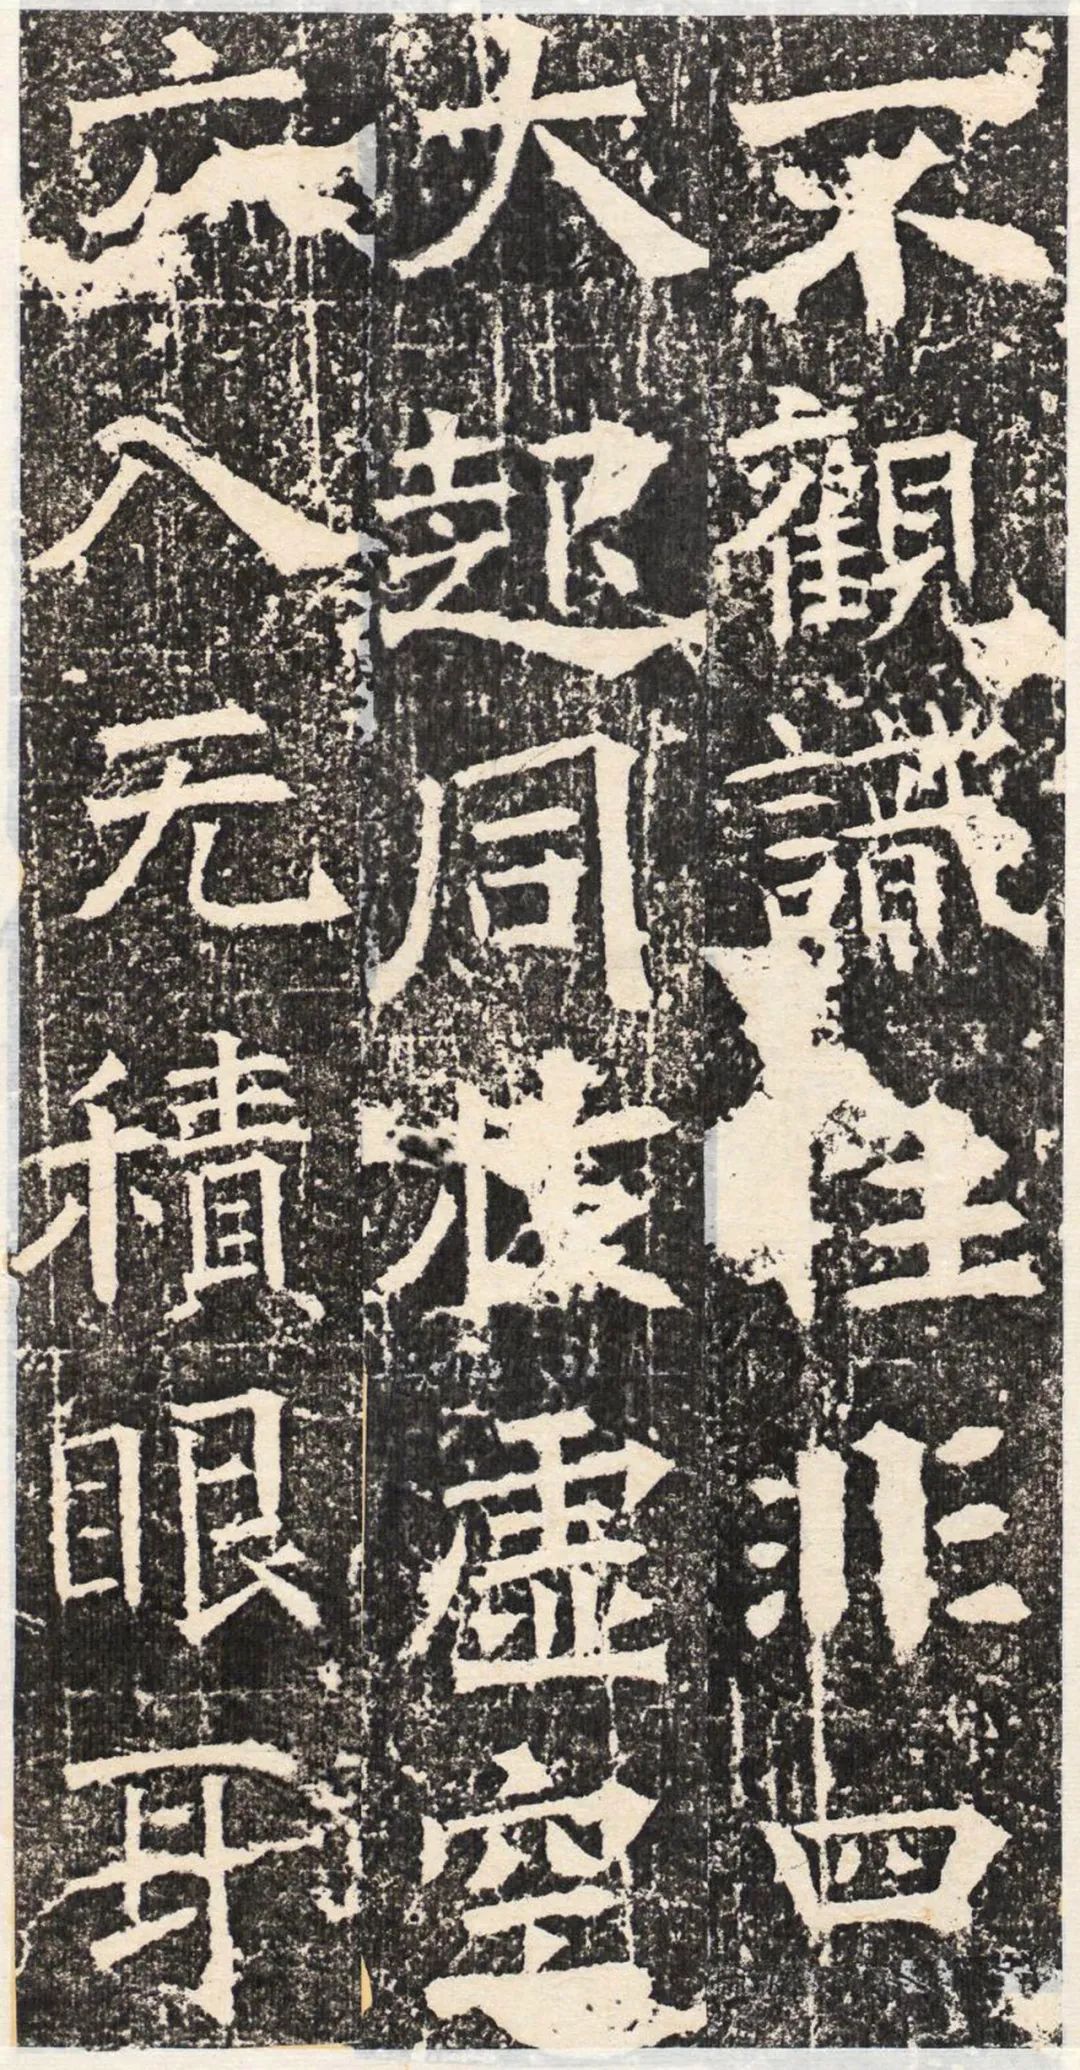 不觀識性非四
大起同於虛空
六入无積眼耳